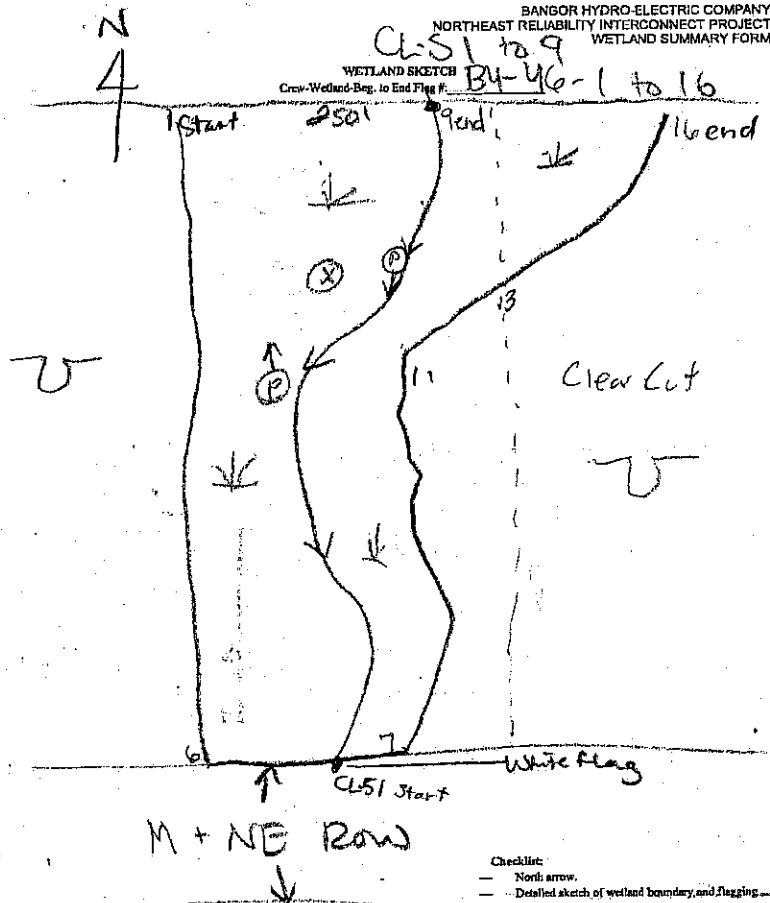 BANGOR HYDRO-ELECTRIC COMPANY
NORTHEAST RELIABILITY INTERCONNECT PROJECT
WETLAND SUMMARY FORM
N
CL-51 to 9
WETLAND SKETCH
Crew-Wetland-Beg. to End Flag #: B4-46-1 to 16
1 Start
250'
9 end
16 end
X
P
13
P
11
Clear Cut
6
7
White flag
CL-51 Start
M + NE Row
Checklist:
— North arrow.
— Detailed sketch of wetland boundary, and flagging